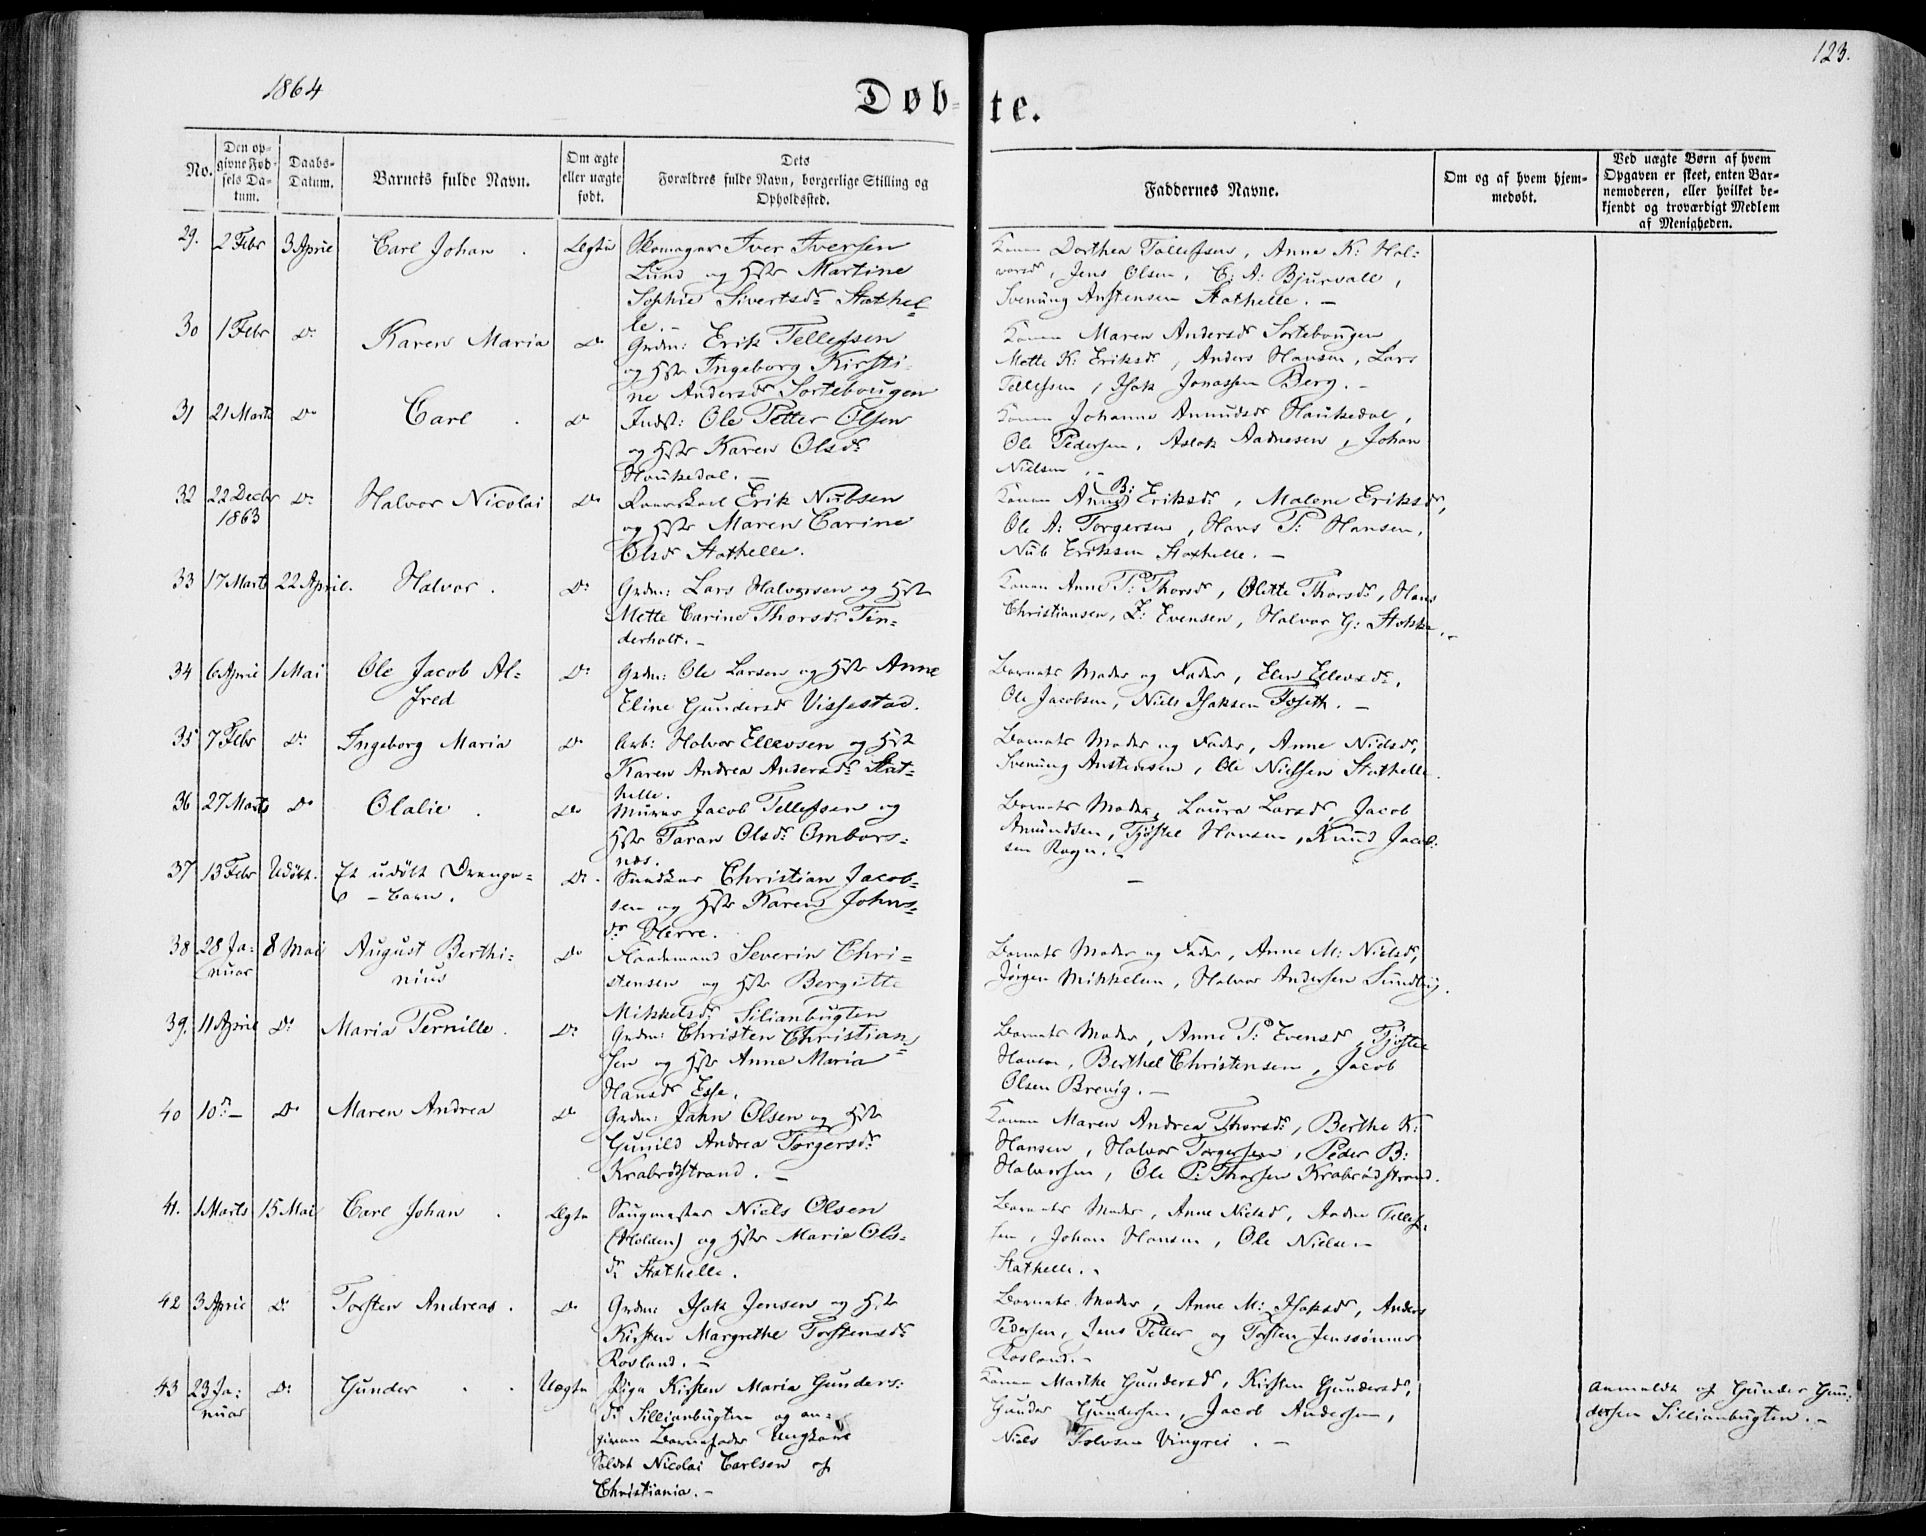 1864
123.
Døb-te.
No.
Den op-
givne Fød-
sels Da-
tum.
Daabs-
Datum.
Barnets fulde Navn.
Om ægte
eller uægte
født.
Dets
Forældres fulde Navn, borgerlige Stilling og
Opholdssted.
Faddernes Navne.
Om og af hvem hjem-
medøbt.
Ved uægte Børn af hvem
Opgaven er skeet, enten Bar-
nemoderen, eller hvilket be-
kjendt og troværdigt Medlem
af Menigheden.
29. 2 Febr 3 April Carl Johan . Ægte Skomager Iver Iversen
Lund og Hst Martine
Sophie Sivertsdr Stathel-
le. –
Konen Dorthea Tollefsen, Anne K: Hal-
vorsdr, Jens Olsen, C: A: Bjurvall,
Svenung Anstensen Stathelle. –
30 1 Febr Do Karen Maria Do Grdm: Erik Tellefsen
og Hst Ingeborg Kirsti-
ne Andersdr Sortebougen
Konen Maren Andersdr Sortebougen,
Mette K: Eriksdr, Anders Hansen, Lars
Tellefsen, Isak Jonassen Berg. –
31 21 Marts Do Carl . Do Indst: Ole Petter Olsen
og Hst Karen Olsdr
Haukedal. –
Konen Johanne Amundsdr Haukedal,
Ole Pedersen, Aslak Aadnesen, Johan
Nielsen. –
32 22 Decbr 1863 Do Halvor Nicolai Do Erik Nubsen
og Hst Maren Carine
Olsdr Stathelle.
Konen Anne B: Eriksdr, Malene Eriksdr,
Ole A: Torgersen, Hans P: Hansen,
Nub Eriksen Stathelle. –
33 17 Marts 22 April. Halvor . Do Grdm: Lars Halvorsen og Hst
Mette Carine Thorsdr Tin-
derholt. –
Konen Anne P: Thorsdr, Olette Thorsdr, Hans
Christiansen, L: Evensen, Halvor G: Stokke. –
34 6 April 1 Mai Ole Jacob Al-
fred Do Grdm: Ole Larsen og Hst Anne
Eline Gundersdr Vissestad.
Barnets Moder og Fader, Elen Ellevsdr,
Ole Jacobsen, Niels Isaksen Foseth. –
35 7 Febr Do Ingeborg Maria Do Arb: Halvor Ellevsen og Hst
Karen Andrea Andersdr Stat-
helle.
Barnets Moder og Fader, Anne Nielsdr,
Svenung Anstensen, Ole Nielsen Stathelle.
36 27 Marts Do Olalie . Do Murer Jacob Tellefsen og
Hst Taran Olsdr Ombors-
næs.
Barnets Moder, Laura Larsdr, Jacob
Amundsen, Tjøstel Hansen, Knud Jacob-
sen Rogn. –
37 13 Febr Udøbt. Et udøbt Drenge-
– barn. Do Smedkar Christian Jacob-
sen og Hst Karen Johns-
dr Herre.
–
38 28 Ja-
nuar 8 Mai August Berthi-
nius Do Flaademand Severin Chri-
stensen og Hst Bergitte
Mikkelsdr Silianbugten
Barnets Moder og Fader, Anne M: Nielsdr,
Jørgen Mikkelsen, Halvor Andersen Sundby.
39. 11 April Do Maria Pernille . Do Grdm: Christen Christian-
sen og Hst Anne Maria
Hansdr Esse.
Barnets Moder, Anne P: Evensdr, Tjøstel
Hansen, Berthel Christensen, Jacob
Olsen Brevig. –
40 10 – Do Maren Andrea Do Grdm: Jahn Olsen og Hst
Gunild Andrea Torgersdr
Krabrødstrand. –
Konen Maren Andrea Thorsdr, Berthe K:
Hansen, Halvor Torgersen, Peder B:
Halvorsen, Ole P: Thorsen Krabrødstrand.
41. 1 Marts 15 Mai Carl Johan . Ægte Saugmester Niels Olsen
(Holden) og Hst Marie Ols-
dr Stathelle.
Barnets Moder, Anne Nielsdr, Andrea Tellef-
sen, Johan Hansen, Ole Nielsen
Stathelle. –
42 3 April Do Torsten Andreas . Do Grdm: Isak Jensen og Hst
Kirsten Margrethe Torstensdr
Rosland. –
Barnets Moder, Anne M: Isaksdr, Anders
Pedersen, Jens Peller og Torsten Jenssønner
Rosland. –
43 23 Ja-
nuar Do Gunder . . Uægte Pige Kirsten Maria Gunders-
dr Sillianbugten og an-
given Barnefader Ungkarl
Soldat Nicolai Carlsen af
Christiania. –
Konen Marthe Gundersdr, Kirsten Gundersdr,
Gunder Gundersen, Jacob Andersen,
Niels Tolvsen Vingrei. –
Anmeldt af Gunder Gun-
dersen Sillianbugten. –